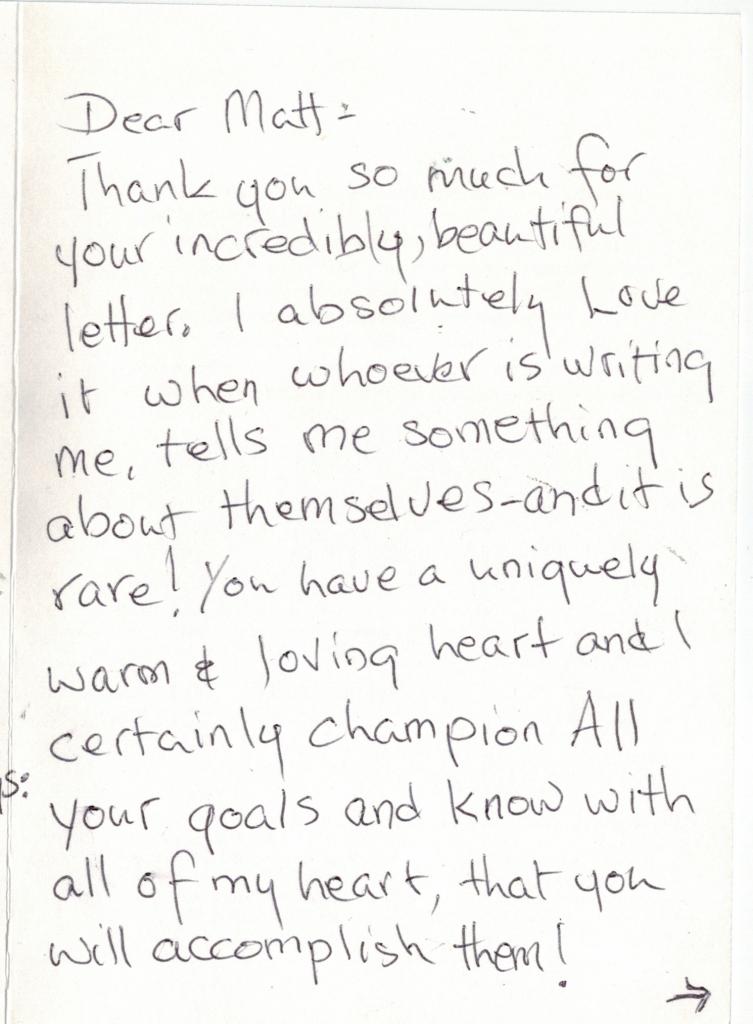 Dear Matt-
Thank you so much for
your incredibly, beautiful
letter. I absolutely Love
it when whoever is writing
me, tells me something
about themselves-and it is
rare! You have a uniquely
warm & loving heart and I
certainly champion All
s:
your goals and know with
all of my heart, that you
will accomplish them!
→